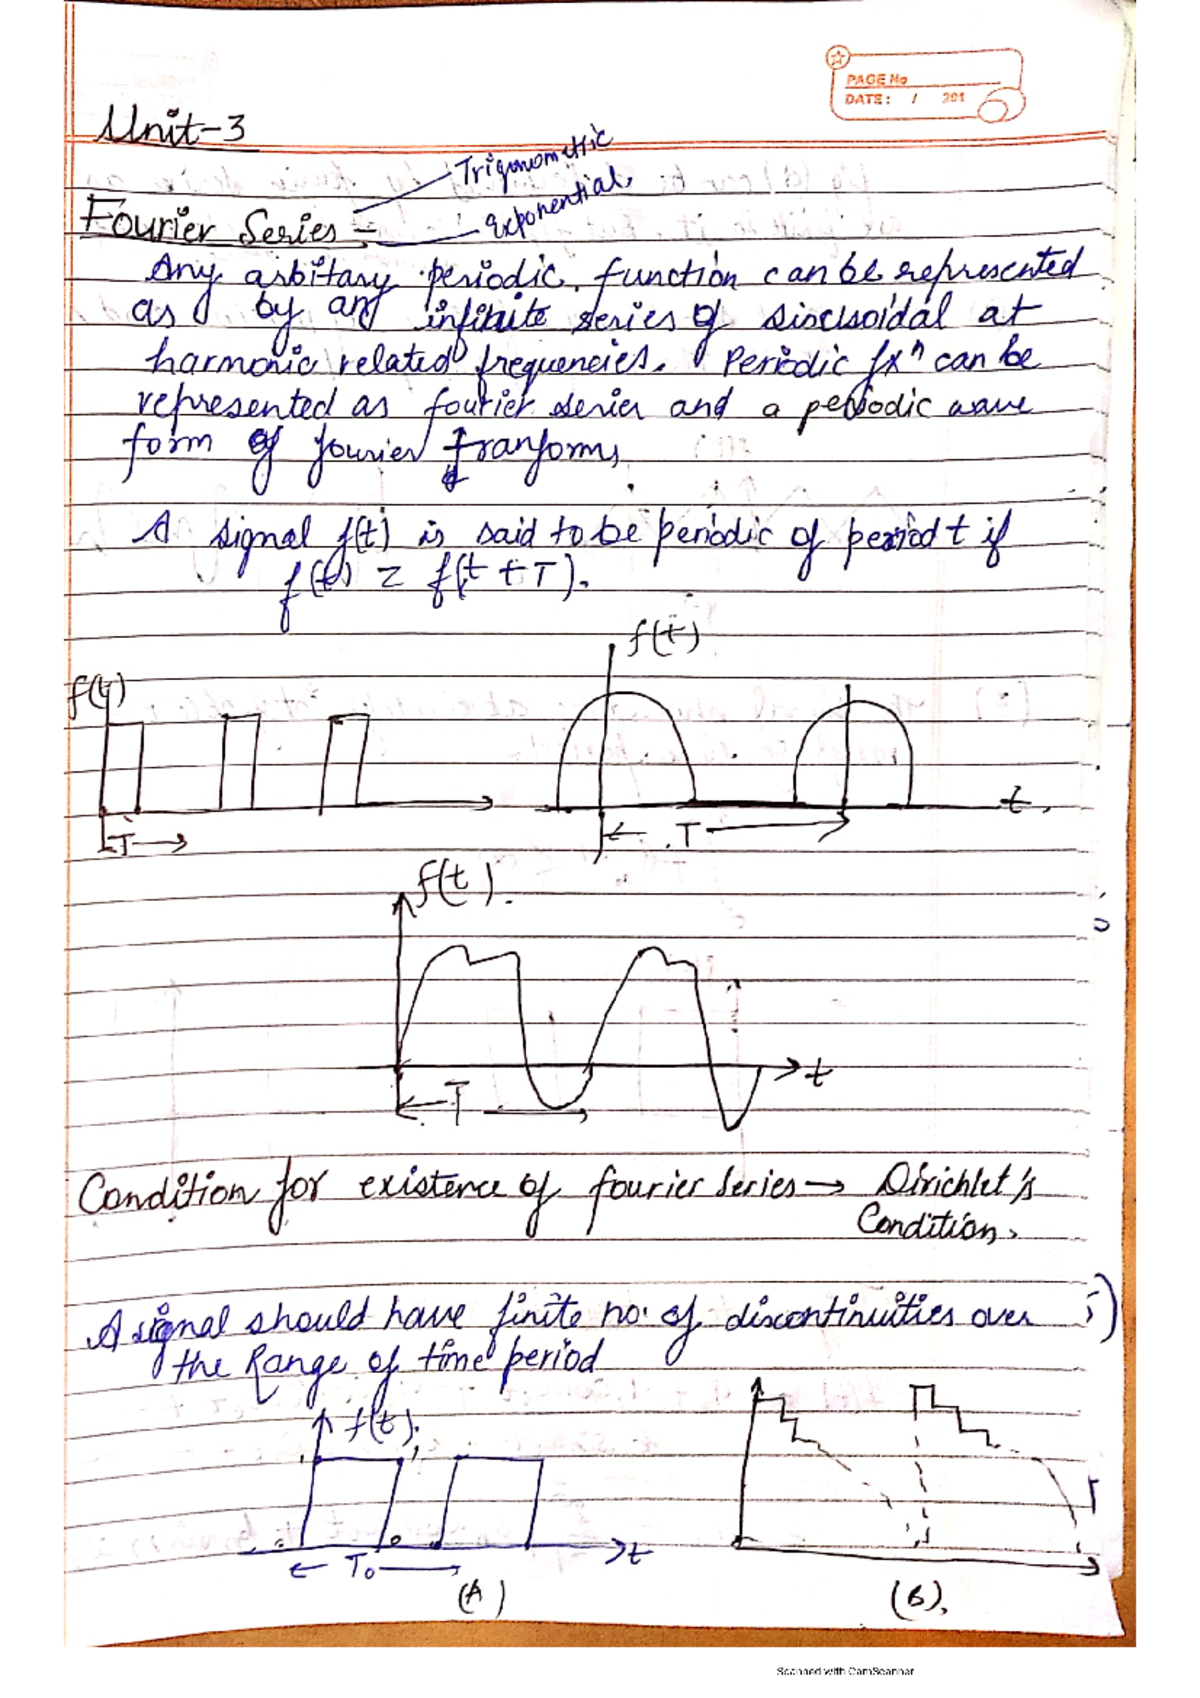 PAGE No
DATE: / 201
Unit-3
Trigonometric
Fourier Series -
exponential.
Any arbitary periodic. function can be represented
as by any infinite series of sinusoidal at
harmonic related frequencies. Periodic fxⁿ can be
represented as fourier series and a periodic wave
form of fourier Tranforms
A signal f(t) is said to be periodic of period t if
f(t) = f(t + T).
f(t)
f(t)
T
T
t.
f(t).
T
t
Condition for existence of fourier series → Dirichlet's
Condition.
A signal should have finite no. of discontinuities over i)
the Range of time period
f(t).
T₀
t
(A)
(B).
Scanned with CamScanner